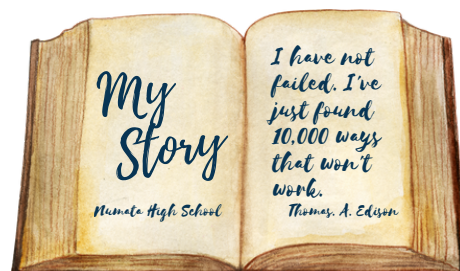 My
Story
Numata High School
I have not
failed. I've
just found
10,000 ways
that won't
work.
Thomas. A. Edison